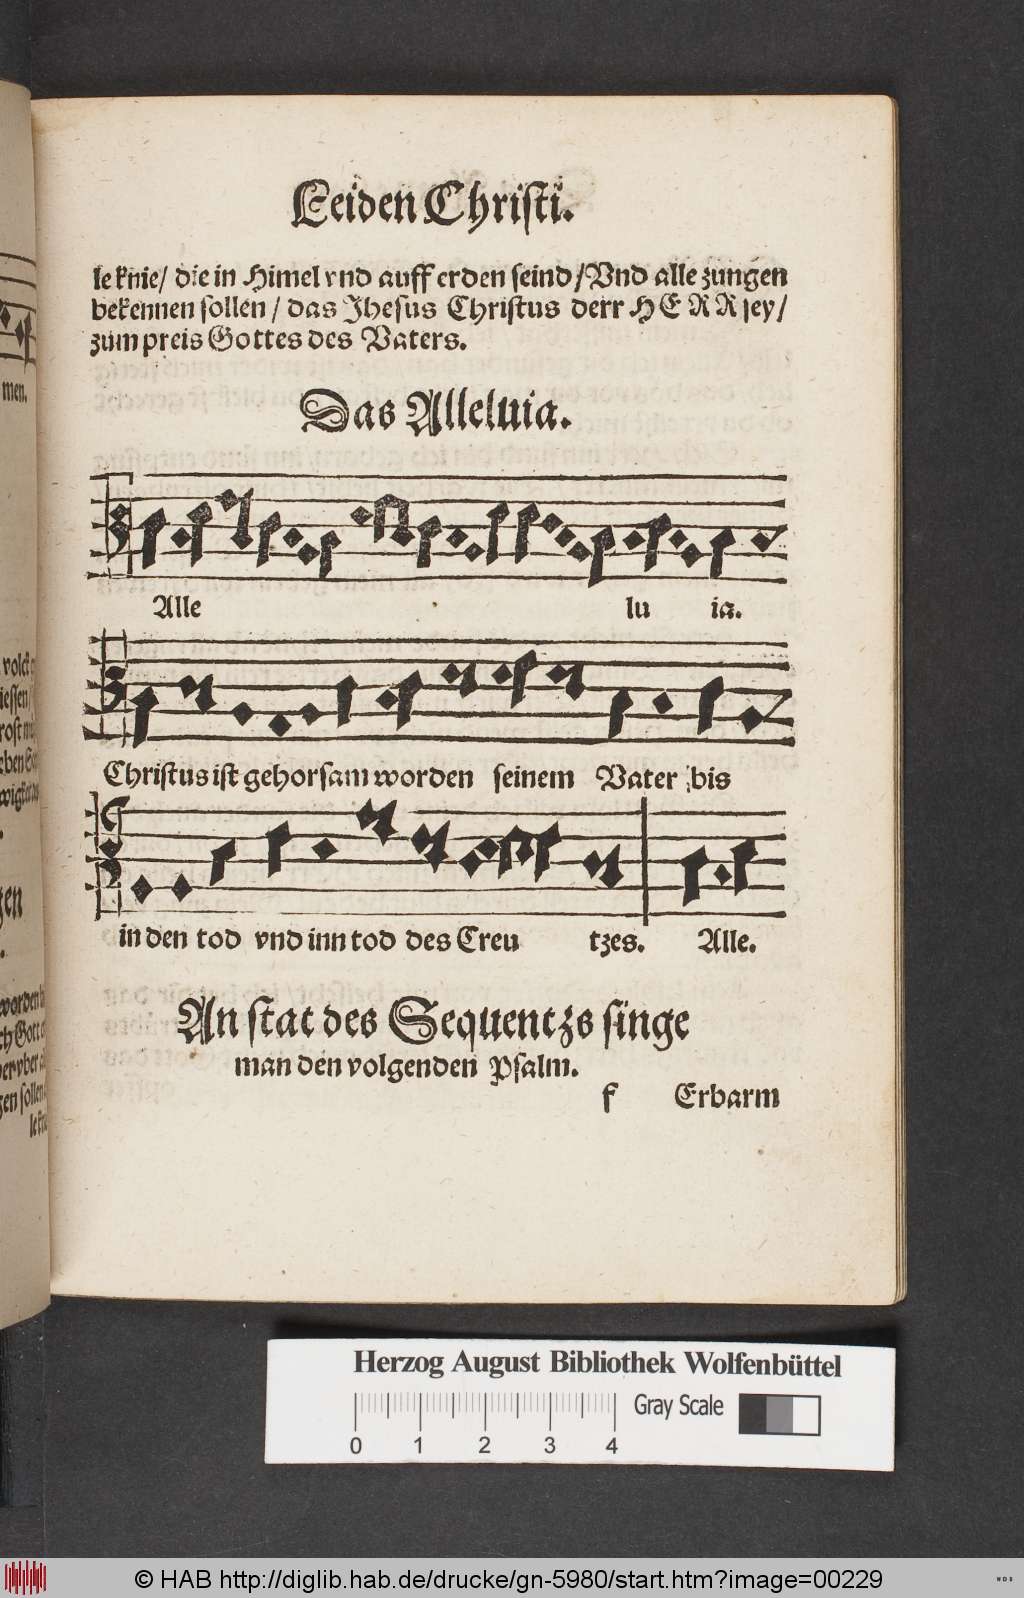 Leiden Christi.
le knie/ die in Himel vnd auff erden seind/Vnd alle zungen
bekennen sollen / das Jhesus Christus derr HERR sey/
zum preis Gottes des Vaters.
Das Alleluia.
Alle lu ia.
Christus ist gehorsam worden seinem Vater bis
in den tod vnd inn tod des Creu tzes. Alle.
An stat des Sequentzs singe
man den volgenden Psalm.
f Erbarm
men.
Herzog August Bibliothek Wolfenbüttel
Gray Scale
0 1 2 3 4
© HAB http://diglib.hab.de/drucke/gn-5980/start.htm?image=00229